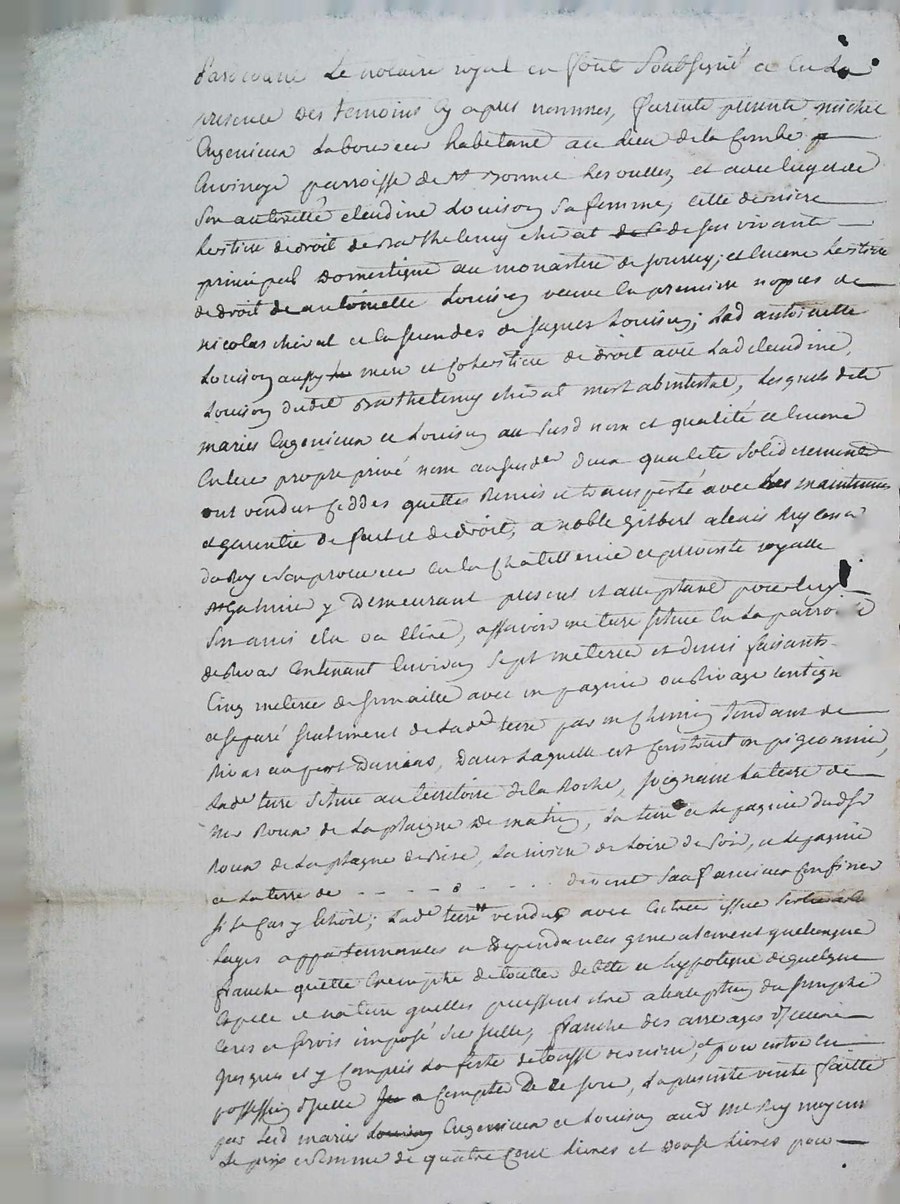 Pardevant Le notaire royal en foret Soubsigné et en La
presence Des temoins Cy apres nommés, furent present michel
Engenieux Laboureur habitant au lieu de la Combe
parroisse de St Bonnet Les oulles, et avec luy et de
Son autorité claudine Louison Sa femme, cette derniere
heritiere de droit de Barthelemy cherat de Son vivant
principal Domestique au monastere de Jourcey, et encore heritiere
de droit de antoinette Louison veuve en premiere nopces de
nicolas cherat et en secondes de Jaques Louison; Lad antoinette
Louison aussy mere et Coheritiere de droit avec Lad claudine
Louison dudit Barthelemy cherat mort abintestat, Lesquels dits
mariés Engenieux et Louison au Susd nom et qualité et encore
En leur propre privé nom qualité Solidairement
ont vendu ceddés quittés Remis et transporté avec maintenue
et garentie de fait et de droit, a noble gilbert alexis Rey Con.er
du Roy et Son procureur En La Chatellenie et prevoté royalle
St Galmier y Demeurant present et acceptant pour luy
Les siens, assavoir une terre Située En La parroisse
de Rivas Contenant Environ Sept meterée et demi faisants
Cinq meterée de Semaille avec un paquier ou Rivage contigu
et Separé Seulement de Lad.e terre par un Chemin Tendant de
Rivas au port Dunias, Dans Laquelle est Construit un pigeonnier,
Lad.e terre Située au territoire de La Roche, Joignant La terre de
Mr Roux de La plagne De matin, La terre et Le paquier dudt Sr
Roux de La plagne de bise, La riviere de Loire de Soir, et Le paquier
et La terre de - - - - - - - de vent Sauf meilleurs Confins
Si Le Cas y Echoit; Lad.e terre vendue avec Entrée issue
appartennances et Dependances generalement quelconque
franche quitte Exempte de touttes debtes et hypoteque de quelque
Espece et nature quelles puissent etre a l'exception du Simple
Cens et Servis imposé Sur Icelle, franche des arrerages d'Iceux
Jusques et y Compris La feste de toussts derniere, et pour entrer en
possession d'Icelle a Compter de Ce jour, La presente vente faitte
par Lesd mariés Engenieux et Louison aud Mr Rey moyennt
Le prix et Somme de quatre Cent Livres et Douse Livres pour